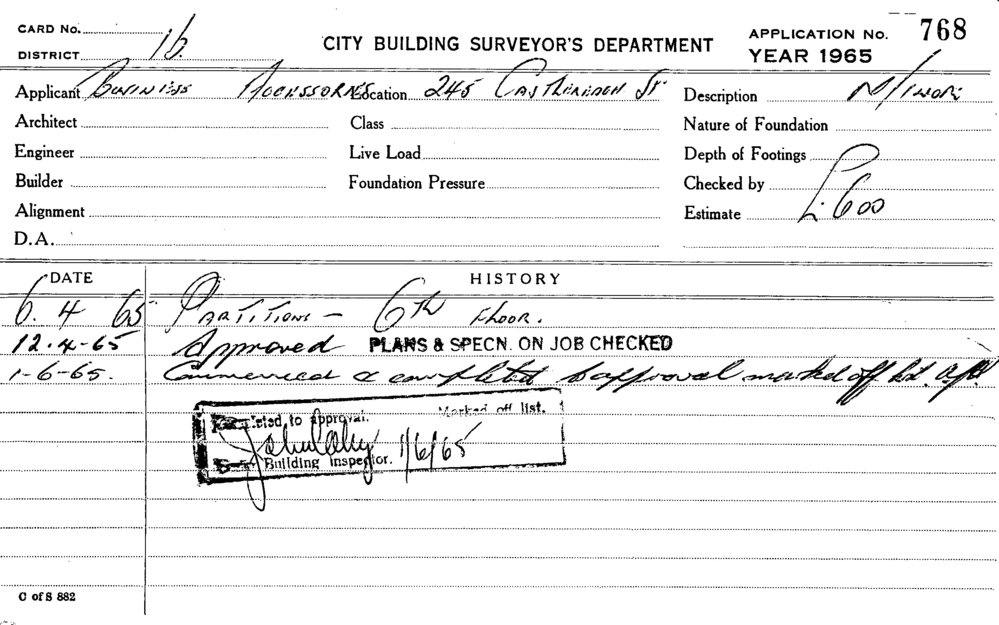 CARD No.
DISTRICT 16
CITY BUILDING SURVEYOR'S DEPARTMENT
APPLICATION No. 768
YEAR 1965
Applicant Business Accessories Location 245 Castlereagh St Description Minor
Architect Class Nature of Foundation
Engineer Live Load Depth of Footings
Builder Foundation Pressure Checked by
Alignment Estimate £600
D.A.
DATE HISTORY
6.4 65 Partitions - 6th Floor.
12.4-65 Approved PLANS & SPECN. ON JOB CHECKED
1-6-65. Commenced & completed to approval marked off list
Completed to approval. Marked off list.
1/6/65
Building Inspector.
C of S 882